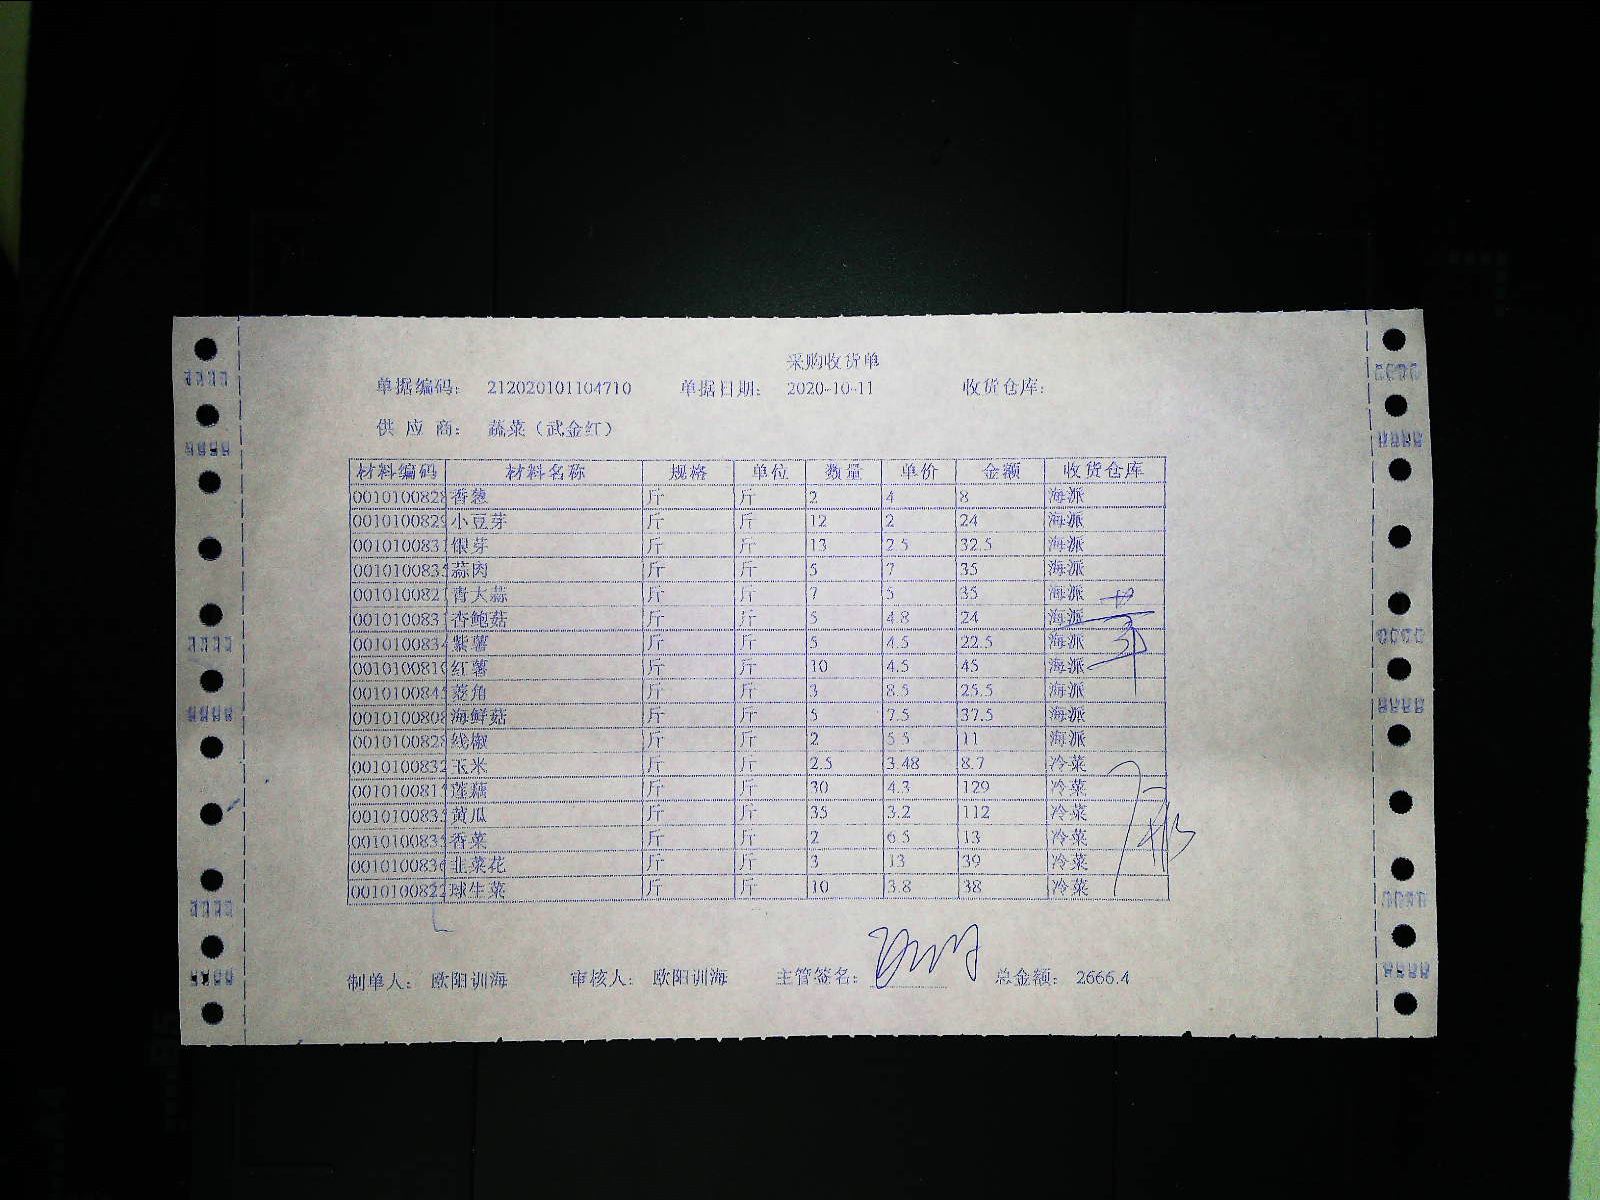 采购收货单
单据编码： 212020101104710 单据日期： 2020-10-11 收货仓库：
供 应 商： 蔬菜（武金红）
材料编码 材料名称 规格 单位 数量 单价 金额 收货仓库
0010100828 香葱 斤 斤 2 4 8 海派
0010100829 小豆芽 斤 斤 12 2 24 海派
001010083 银芽 斤 斤 13 2.5 32.5 海派
001010083 蒜肉 斤 斤 5 7 35 海派
001010082 青大蒜 斤 斤 7 5 35 海派
001010083 杏鲍菇 斤 斤 5 4.8 24 海派
001010083 紫薯 斤 斤 5 4.5 22.5 海派
001010081 红薯 斤 斤 10 4.5 45 海派
001010084 菱角 斤 斤 3 8.5 25.5 海派
001010080 海鲜菇 斤 斤 5 7.5 37.5 海派
001010082 线椒 斤 斤 2 5.5 11 海派
0010100832 玉米 斤 斤 2.5 3.48 8.7 冷菜
001010081 莲藕 斤 斤 30 4.3 129 冷菜
001010083 黄瓜 斤 斤 35 3.2 112 冷菜
001010083 香菜 斤 斤 2 6.5 13 冷菜
001010083 韭菜花 斤 斤 3 13 39 冷菜
0010100822 球生菜 斤 斤 10 3.8 38 冷菜
制单人： 欧阳训海 审核人： 欧阳训海 主管签名： 总金额： 2666.4